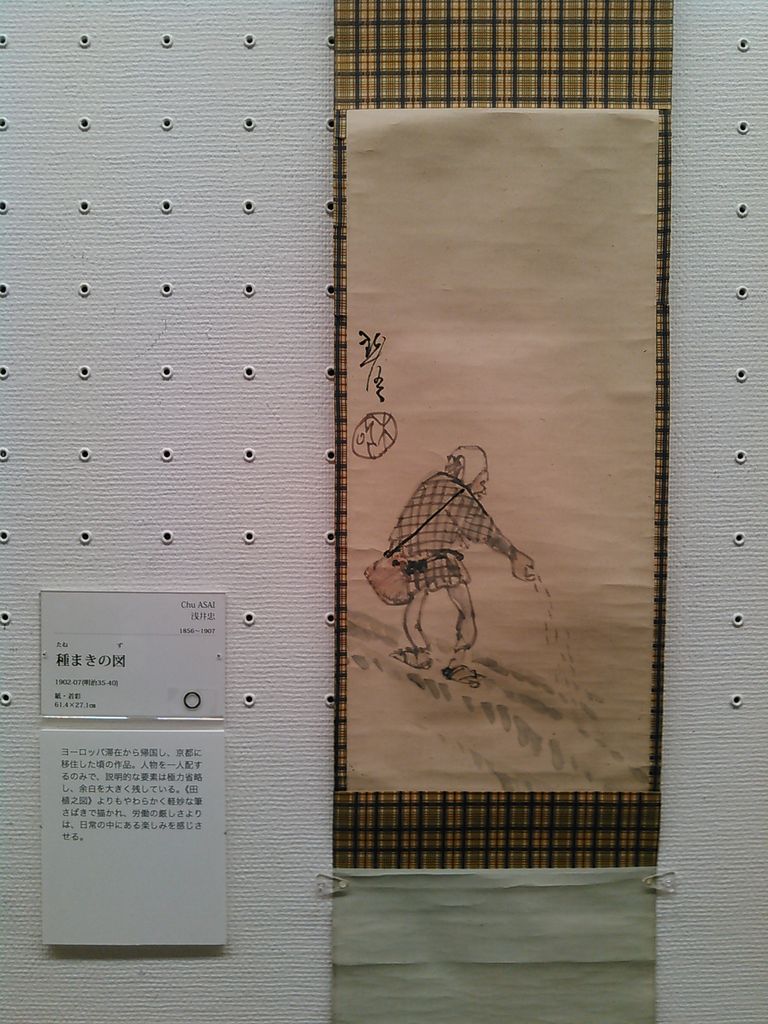 Chu ASAI
浅井忠
1856〜1907
たね ず
種まきの図
1902-07(明治35-40)
紙・着彩
61.4×27.1㎝
ヨーロッパ滞在から帰国し、京都に
移住した頃の作品。人物を一人配す
るのみで、説明的な要素は極力省略
し、余白を大きく残している。《田
植之図》よりもやわらかく軽妙な筆
さばきで描かれ、労働の厳しさより
は、日常の中にある楽しみを感じさ
せる。